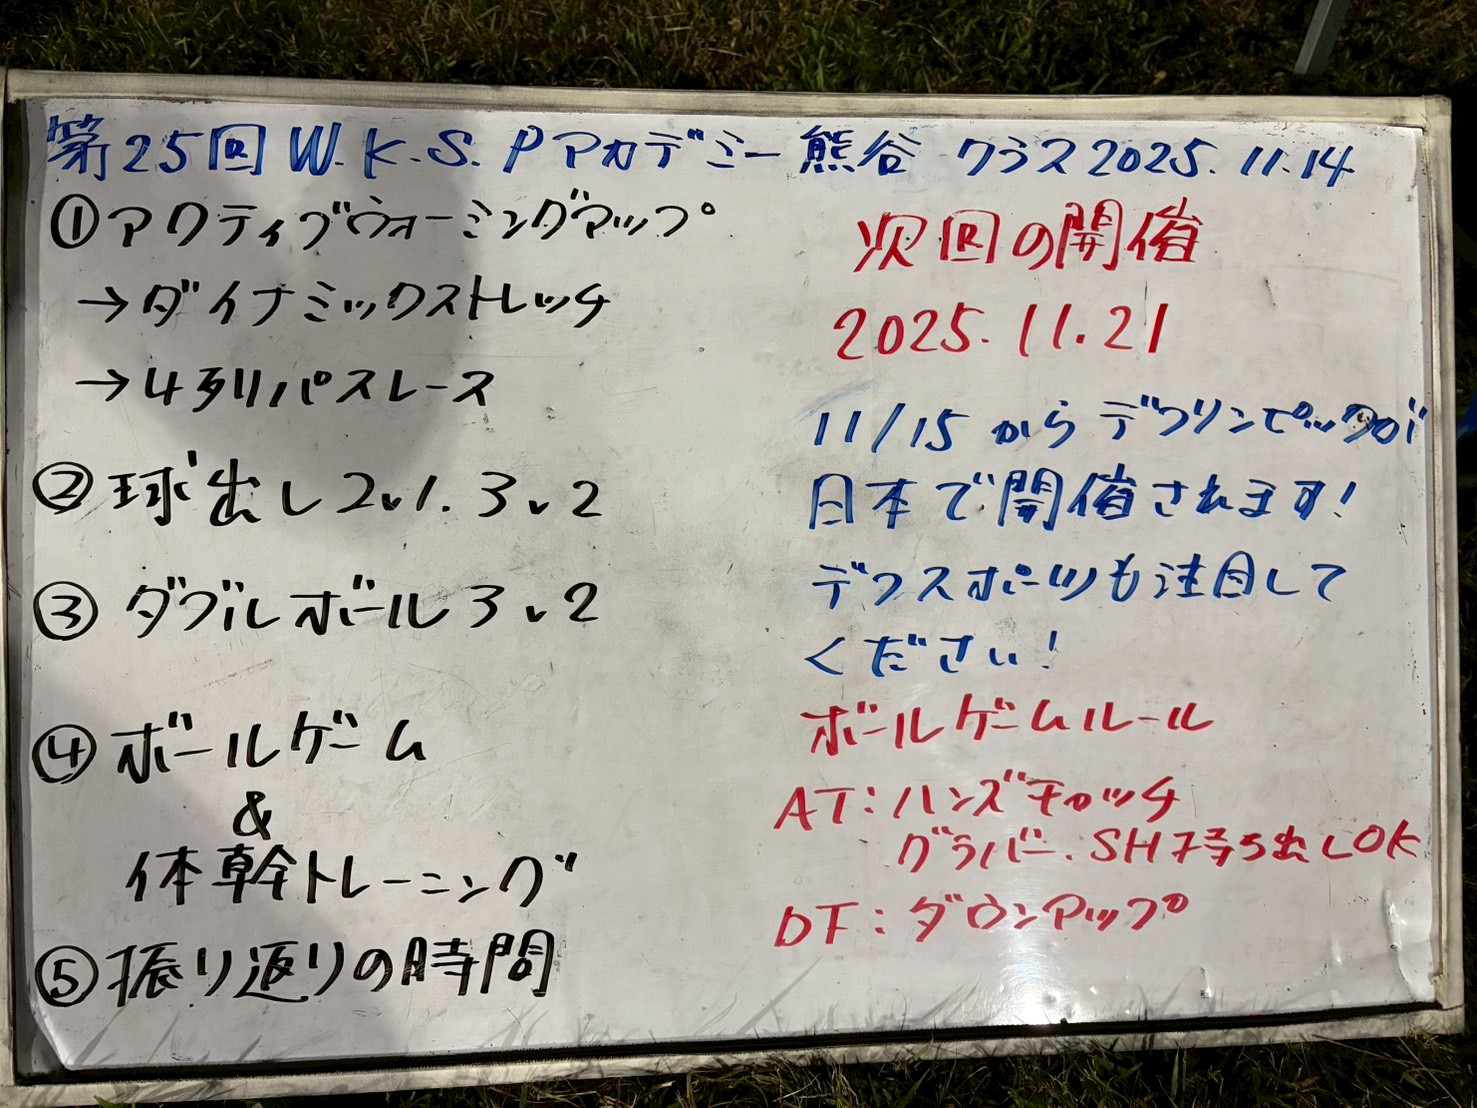 第25回 W.K.S.Pアカデミー熊谷 クラス2025.11.14
①アクティブウォーミングアップ
→ダイナミックストレッチ
→4列パスレース
②球出し2v1.3v2
③ダブルボール3v2
④ボールゲーム
&
体幹トレーニング
⑤振り返りの時間
次回の開催
2025.11.21
11/15からデフリンピックが
日本で開催されます!
デフスポーツも注目して
ください!
ボールゲームルール
AT:ハンズキャッチ
グラバー.SH持ち出しOK
DF:ダウンアップ